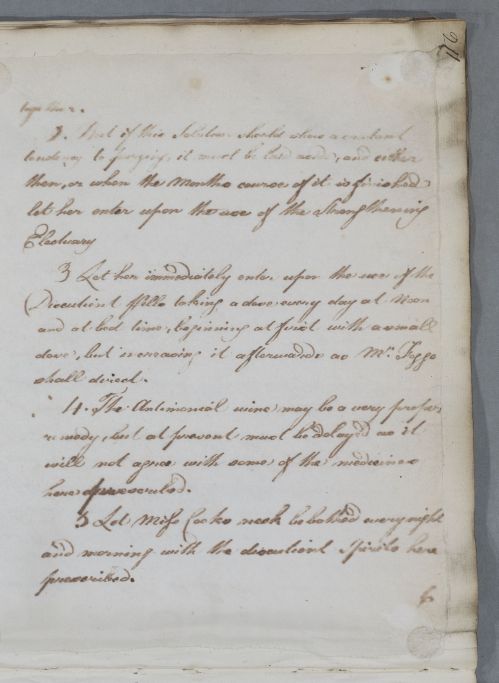 116
together.
2. But if this Solution should show a constant
tendency to purging, it must be laid aside, and either
then, or when the Months course of it is finished
let her enter upon the use of the Strengthening
Electuary
3 Let her immediately enter upon the use of the
Discutient Pills taking a dose every day at Noon
and at bed time, beginning at first with a small
dose, but increasing it afterwards as Mr.
shall direct.
4. The Antimonial wine may be a very proper
remedy, but at present must be delayed as it
will not agree with some of the medicines
here prescribed.
5 Let Miss Cooks neck be bathed every night
and morning with the discutient Spirits here
prescribed.
6